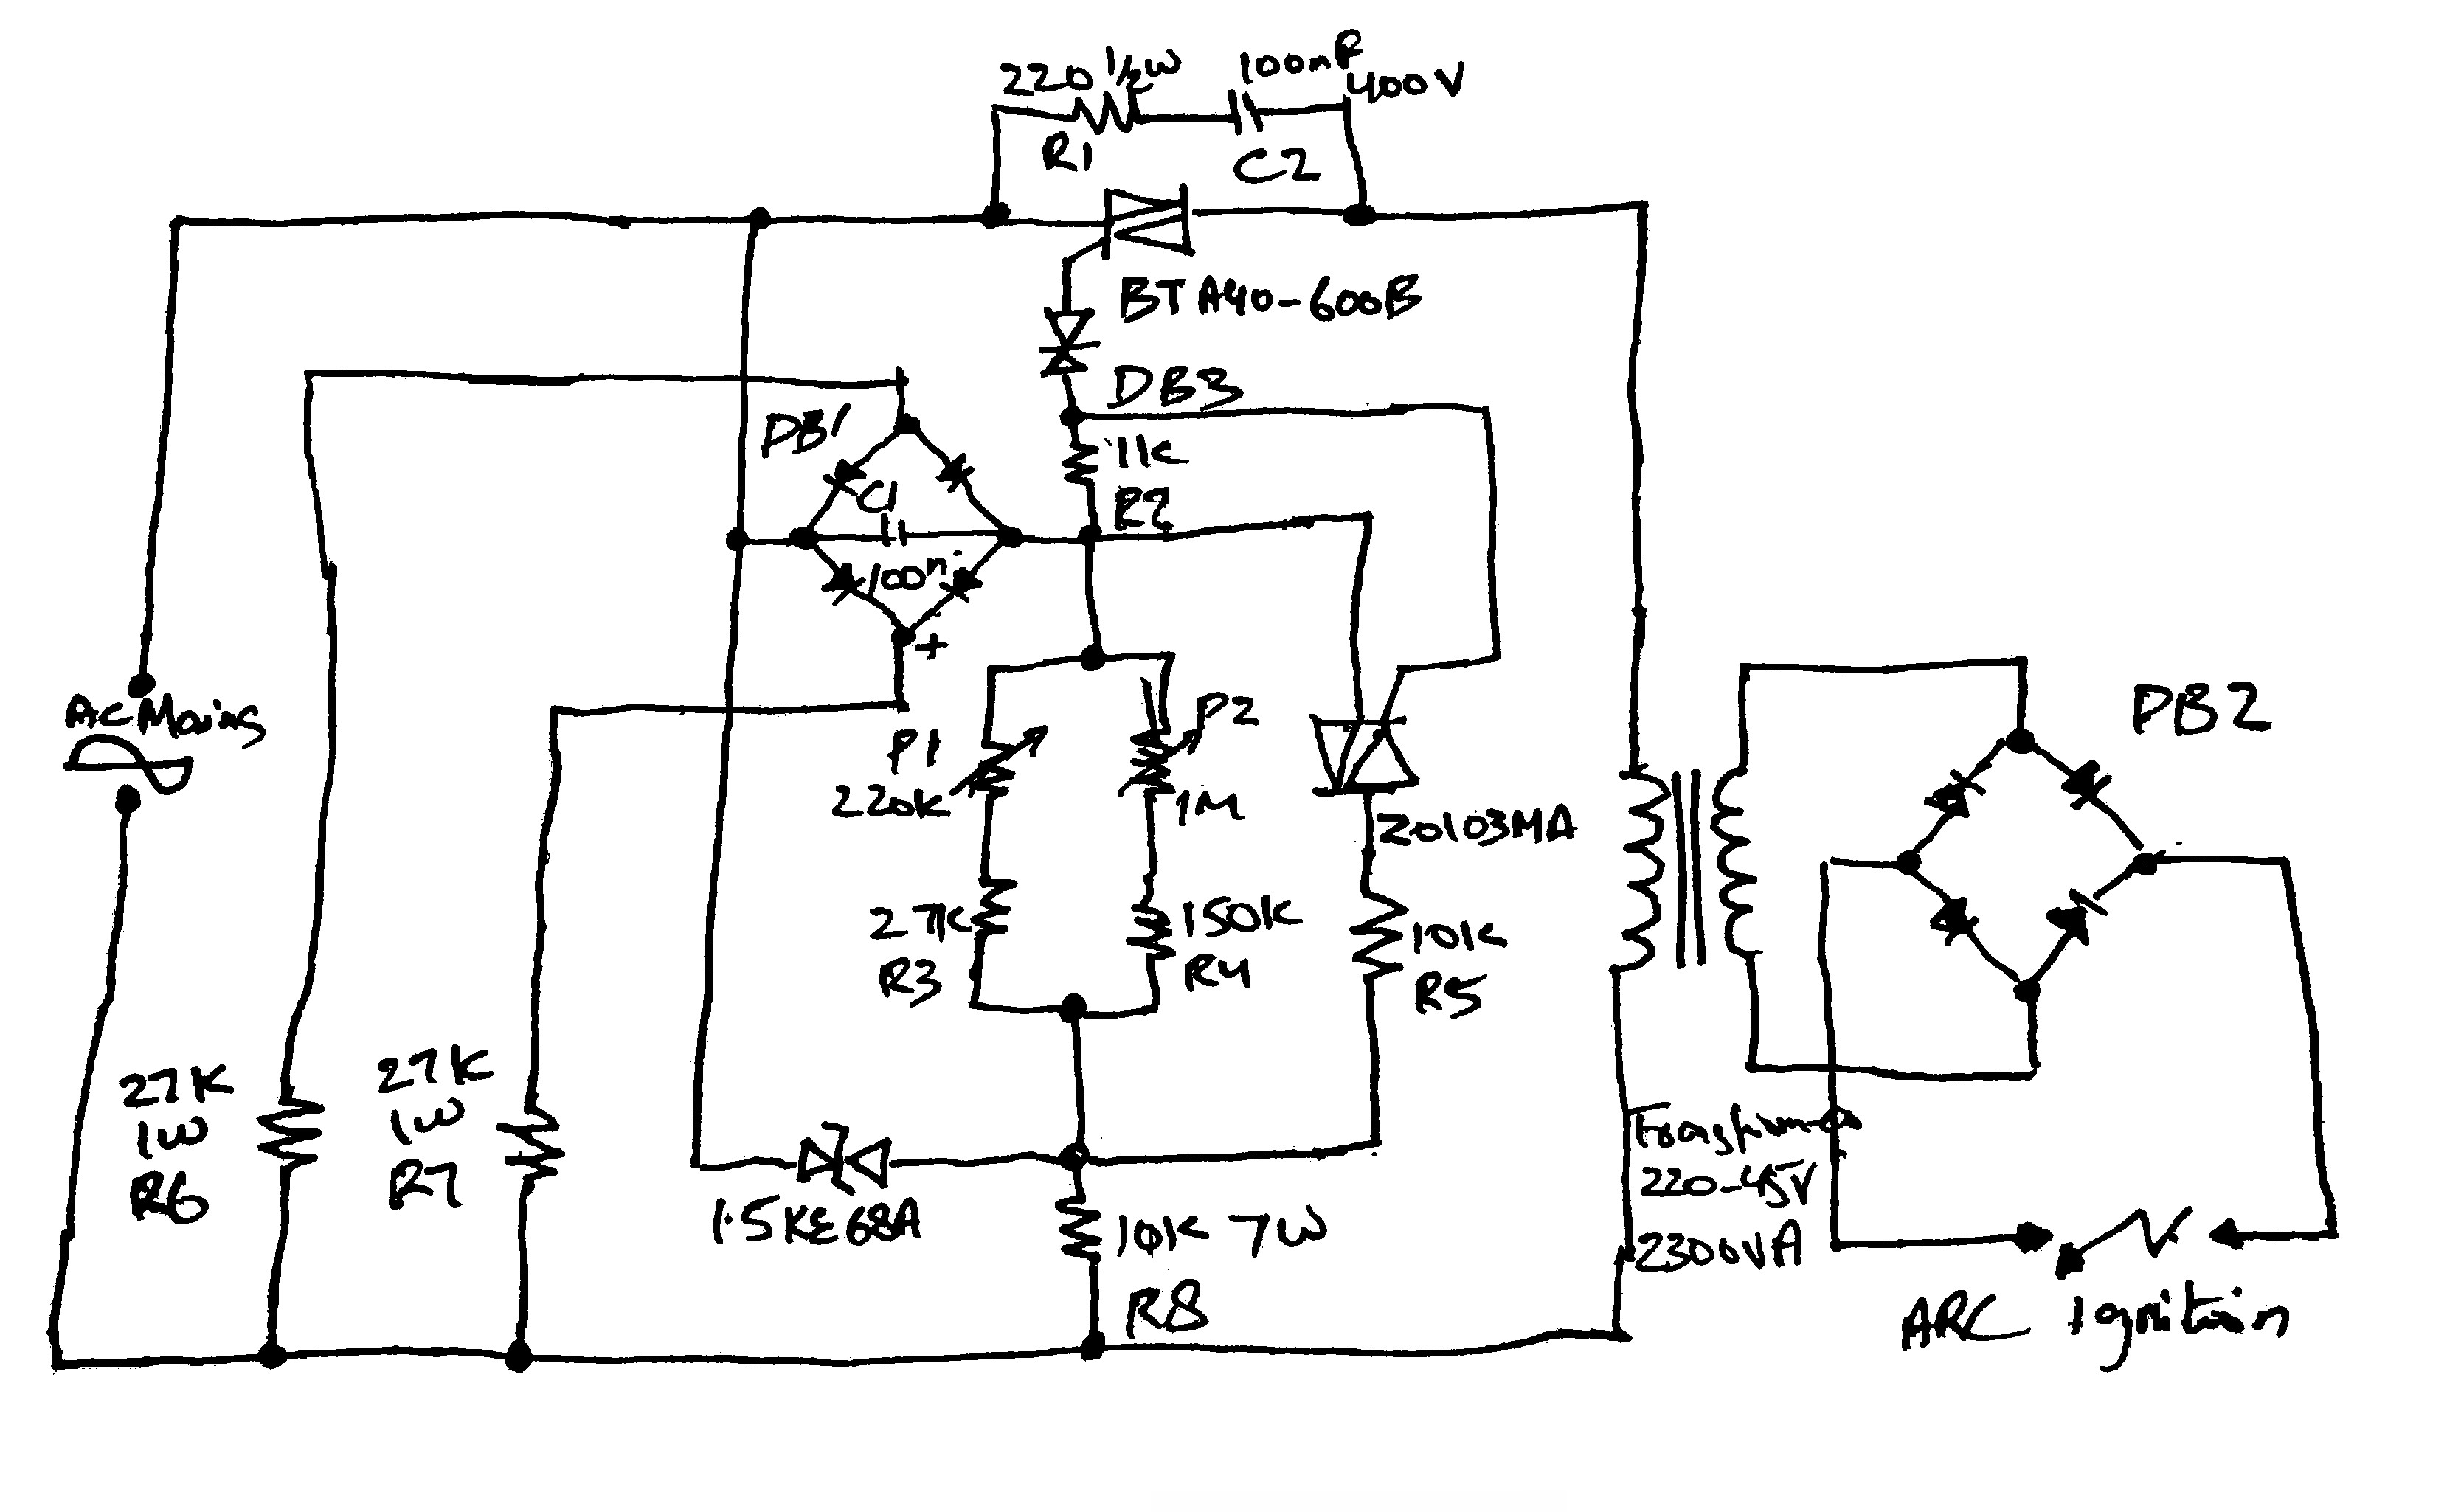 220 1/2W
R1
100nF
400V
C2
BTA40-600B
DB3
DB1
C1
100n
+
1K
R2
AC Mains
P1
220K
P2
1M
Z0103MA
DB2
27K
R3
150K
R4
10K
R5
27K
1W
R6
27K
1W
R7
1.5KE68A
10K 7W
R8
220-45V
2300VA
ARC Ignition